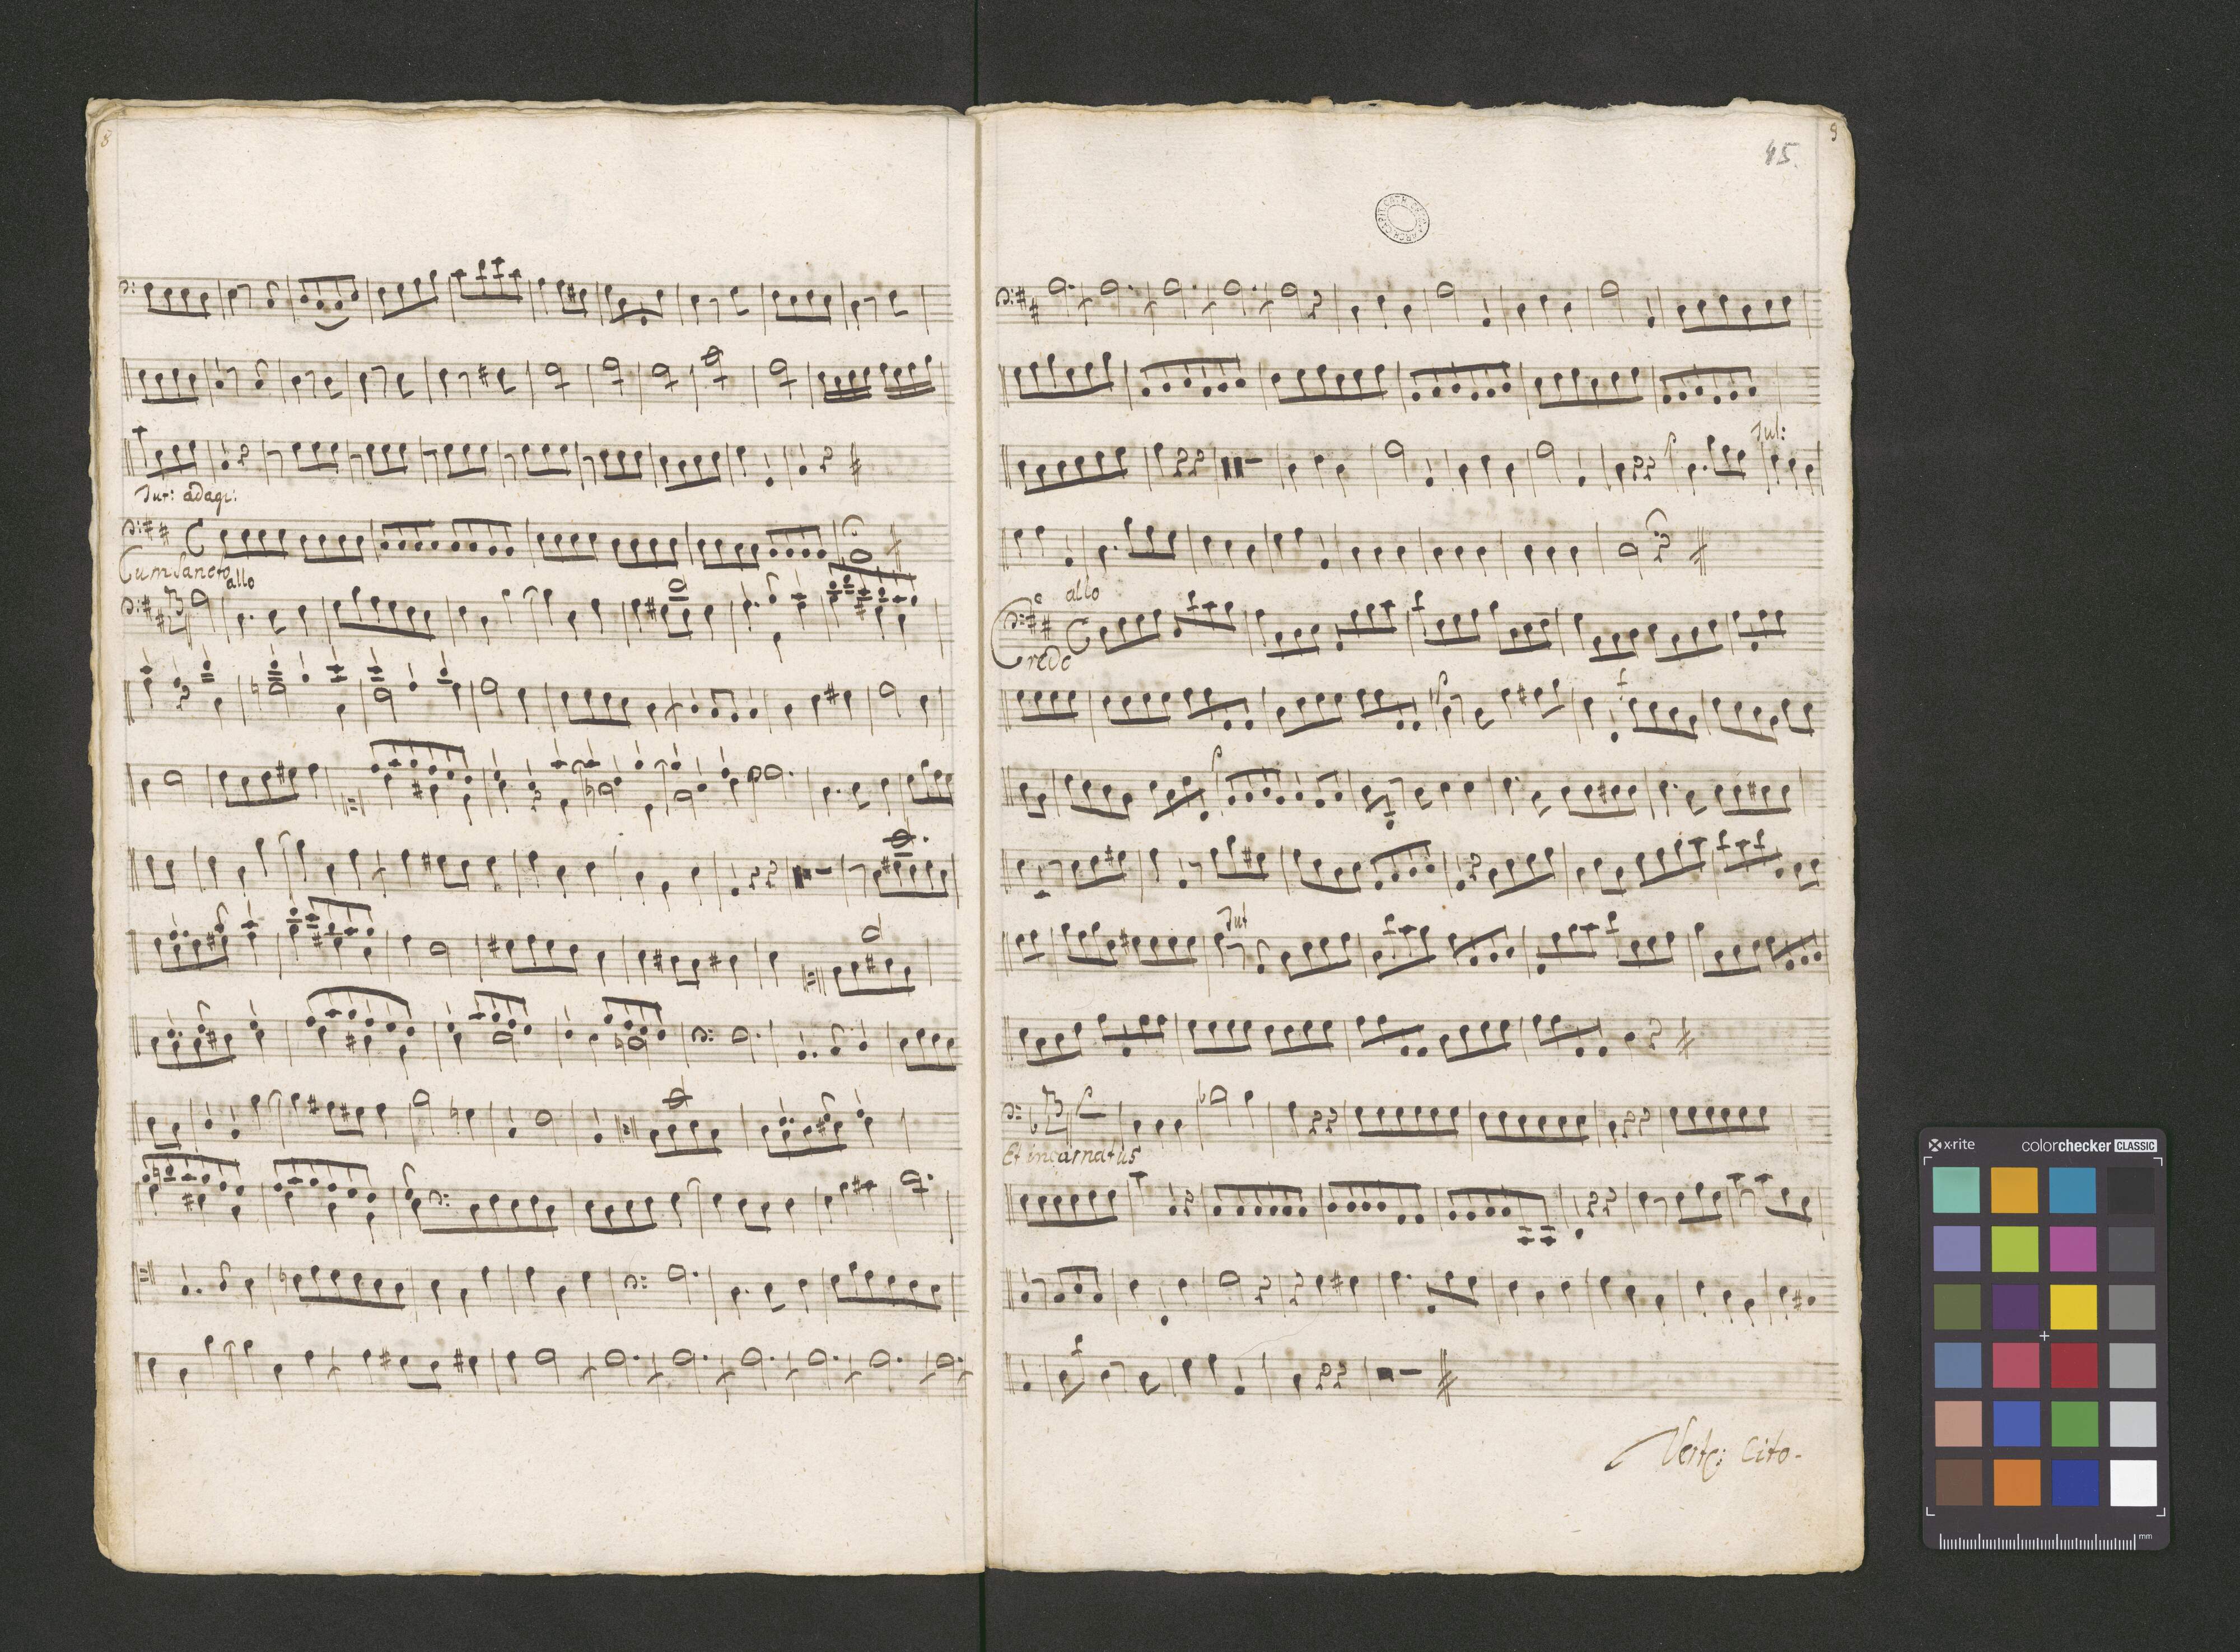 8
Tut: adag:
Cum Sancto
allo
9
45.
Tut:
allo
Credo
Tut
Et incarnatus
Verte: Cito-
x-rite
colorchecker CLASSIC
mm